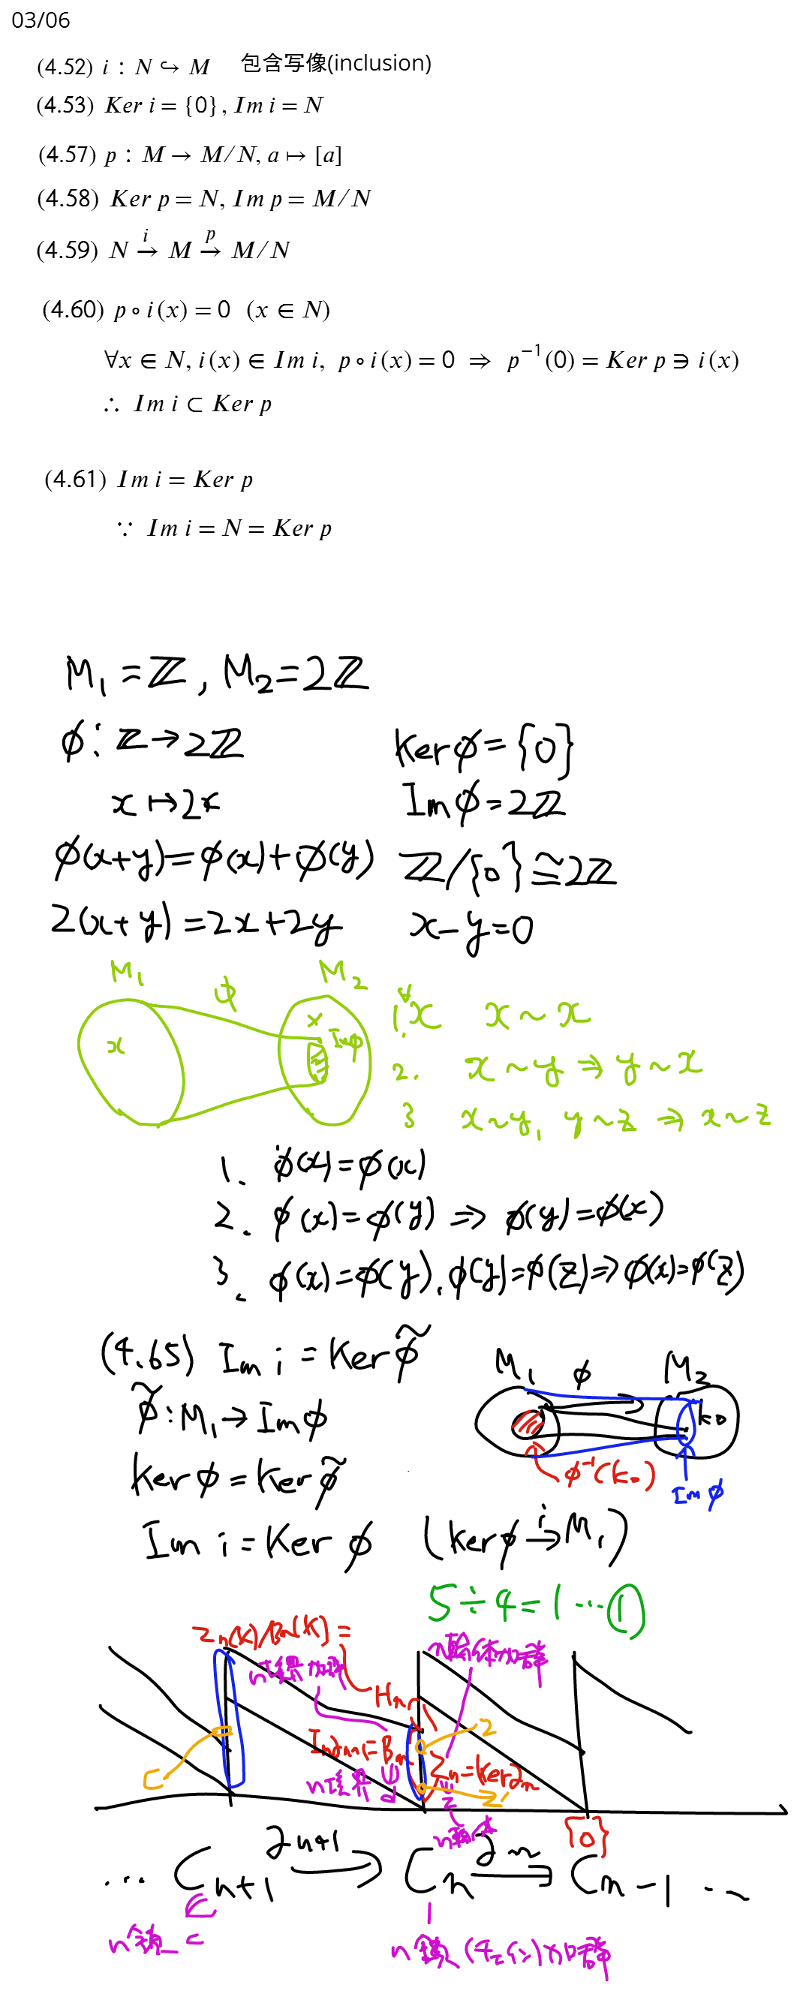 03/06
(4.52) i : N ↪ M 包含写像(inclusion)
(4.53) Ker i = {0}, Im i = N
(4.57) p : M → M/N, a ↦ [a]
(4.58) Ker p = N, Im p = M/N
(4.59) N →^i M →^p M/N
(4.60) p∘i(x) = 0 (x ∈ N)
∀x ∈ N, i(x) ∈ Im i, p∘i(x) = 0 ⇒ p⁻¹(0) = Ker p ∋ i(x)
∴ Im i ⊂ Ker p
(4.61) Im i = Ker p
∵ Im i = N = Ker p
M₁ = ℤ, M₂ = 2ℤ
φ: ℤ → 2ℤ Ker φ = {0}
x ↦ 2x Im φ = 2ℤ
φ(x+y) = φ(x) + φ(y) ℤ/{0} ≅ 2ℤ
2(x+y) = 2x+2y x-y=0
M₁ φ M₂
x x Imφ
1. ∀x x ~ x
2. x ~ y ⇒ y ~ x
3 x~y, y~z ⇒ x~z
1. φ(x) = φ(x)
2. φ(x) = φ(y) ⇒ φ(y) = φ(x)
3. φ(x) = φ(y), φ(y) = φ(z) ⇒ φ(x) = φ(z)
(4.65) Im i = Ker φ̃
φ̃: M₁ → Im φ
Ker φ = Ker φ̃
Im i = Ker φ (Ker φ →^i M₁)
M₁ φ M₂
k₀
φ⁻¹(k₀) Im φ
5÷4=1…①
Zn(K)/Bn(K) =
n境界加群 n輪体加群
Hn
Im∂n+1=Bn z
Zn=Ker∂n
n境界 z'
c z
n輪体 {0}
… Cn+1 →^∂n+1 Cn →^∂n Cn-1 …
n鎖 c n鎖(チェイン)加群